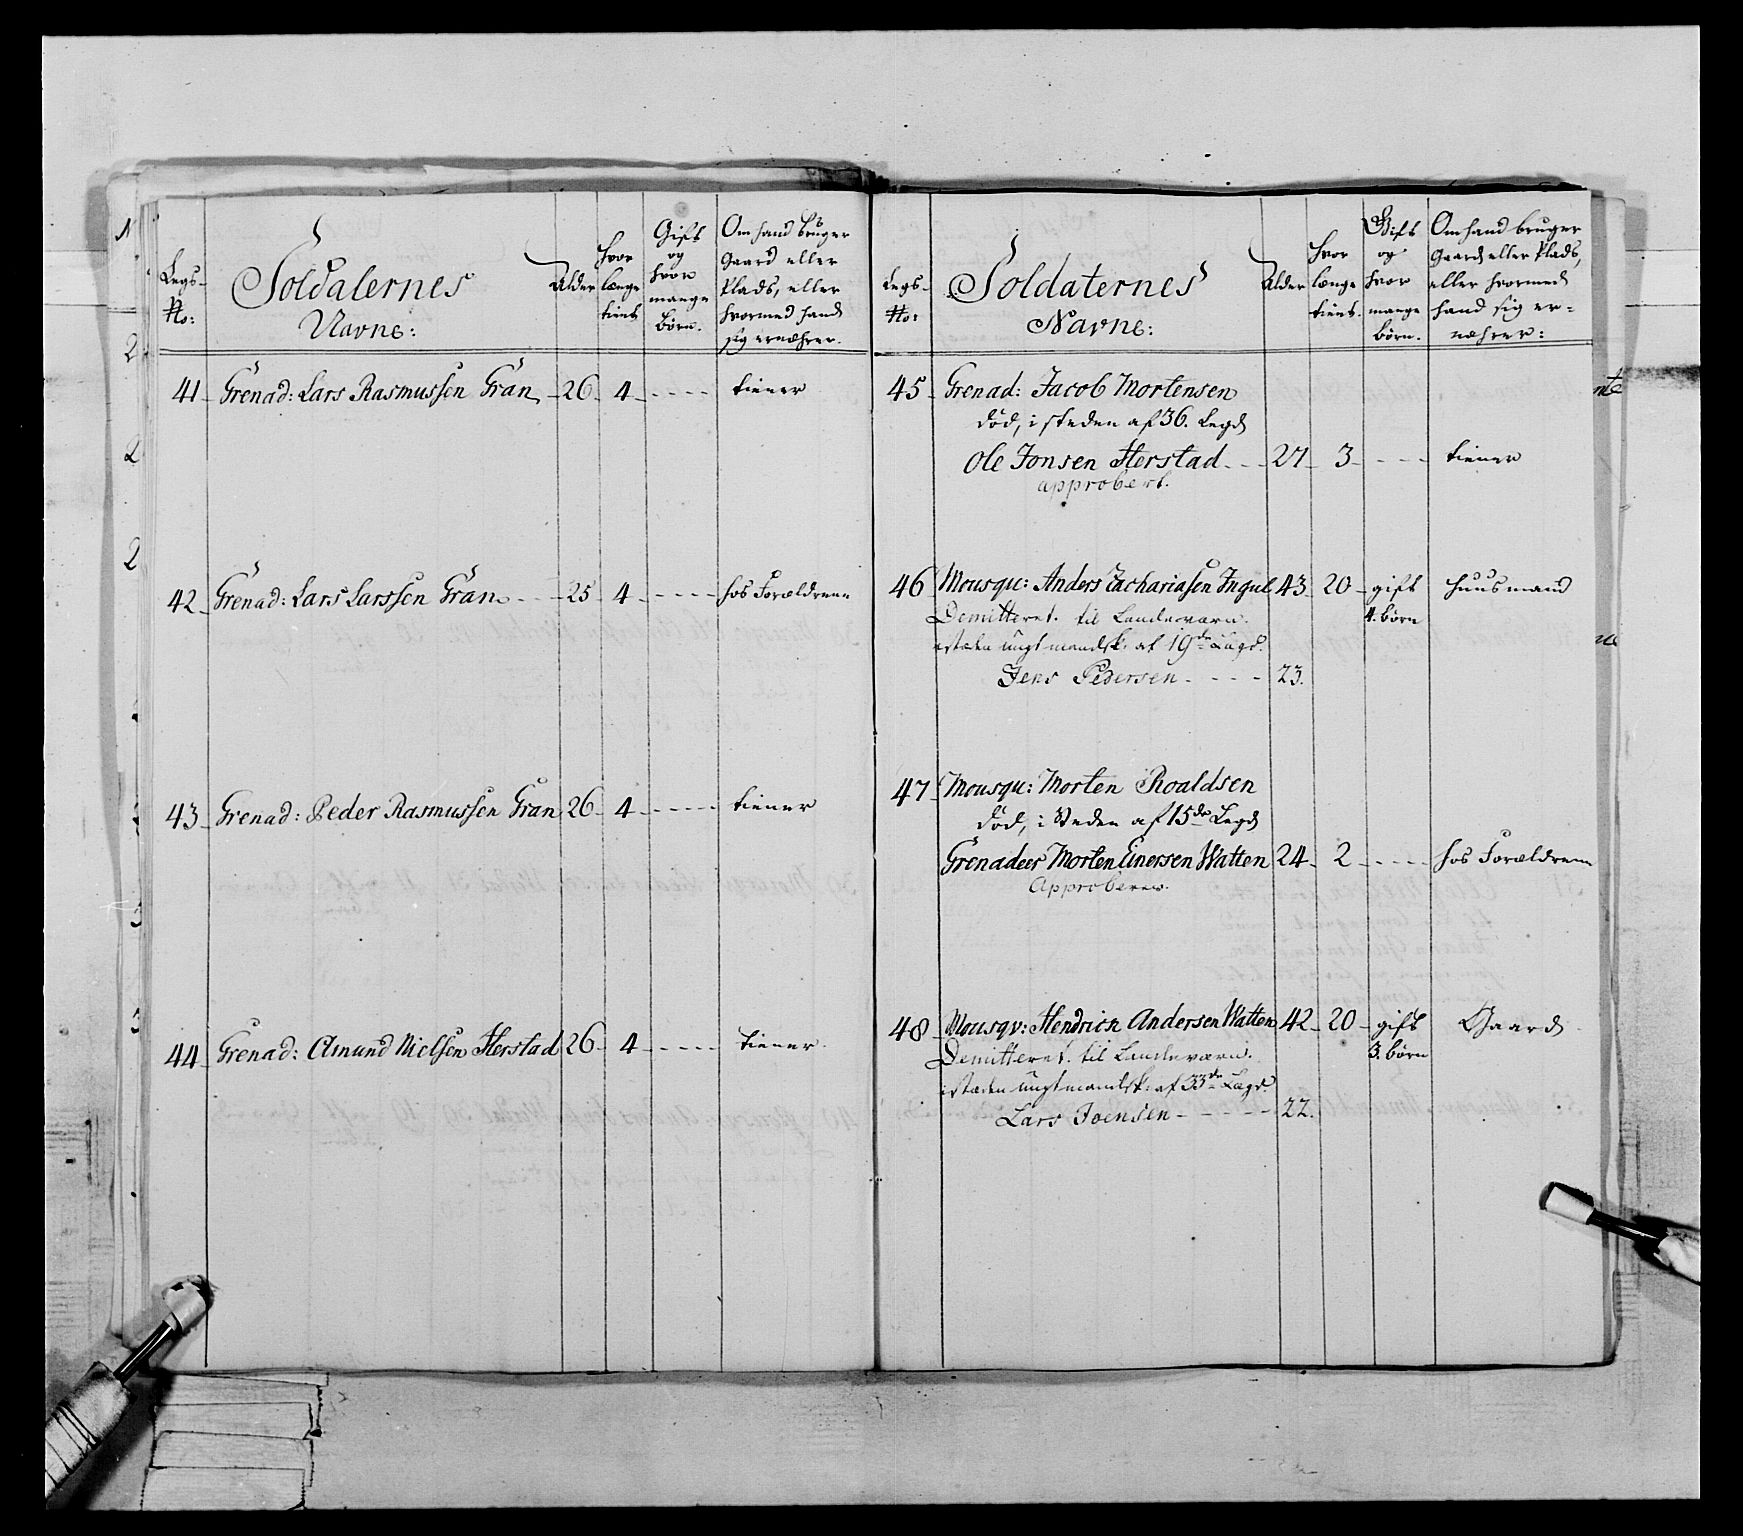 Legs-
No:
Soldaternes
Navne:
Alder
hvor
længe
tient
Gift
og
hvor
mange
børn.
Om hand bruger
Gaard eller
Plads, eller
hvormed hand
sig ernæhrer.
41 Grenad: Lars Rasmussen Gran 26 4 - - - - tiener
42 Grenad: Lars Larssen Gran - - - 25 4 - - - - hos Forældrene
43 Grenad: Peder Rasmussen Gran 26 4 - - - - tiener
44 Grenad: Amund Nielsen Herstad 26 4 - - - - tiener
Legs-
No:
Soldaternes
Navne:
Alder
hvor
længe
tient.
Gift
og
hvor
mange
børn.
Om hand bruger
Gaard eller Plads,
eller hvormed
hand sig er-
næhrer:
45 Grenad: Jacob Mortensen
død, i steden af 36. Legd
Ole Jonsen Herstad - - - 27 3 - - - - tiener
approbert.
46 Mousqu: Anders Zachariasen Ingul 43 20 gift huusmand
Demitteret til Landeværn. 4. børn
istæden ungt mandsk: af 19de Lægd.
Jens Pedersen - - - - 23.
47 Mousqu: Morten Roaldsen
død, i Steden af 15de Legd
Grenadeer Morten Einersen Watten 24 2 - - - - hos Forældrene
Approberes.
48 Mousqv: Hendrich Andersen Watten 42 20 gift Gaard
Demitteret til Landeværn. 3. børn
istæden ungt mandsk: af 33de Lægd.
Lars Joensen - - - - - 22.